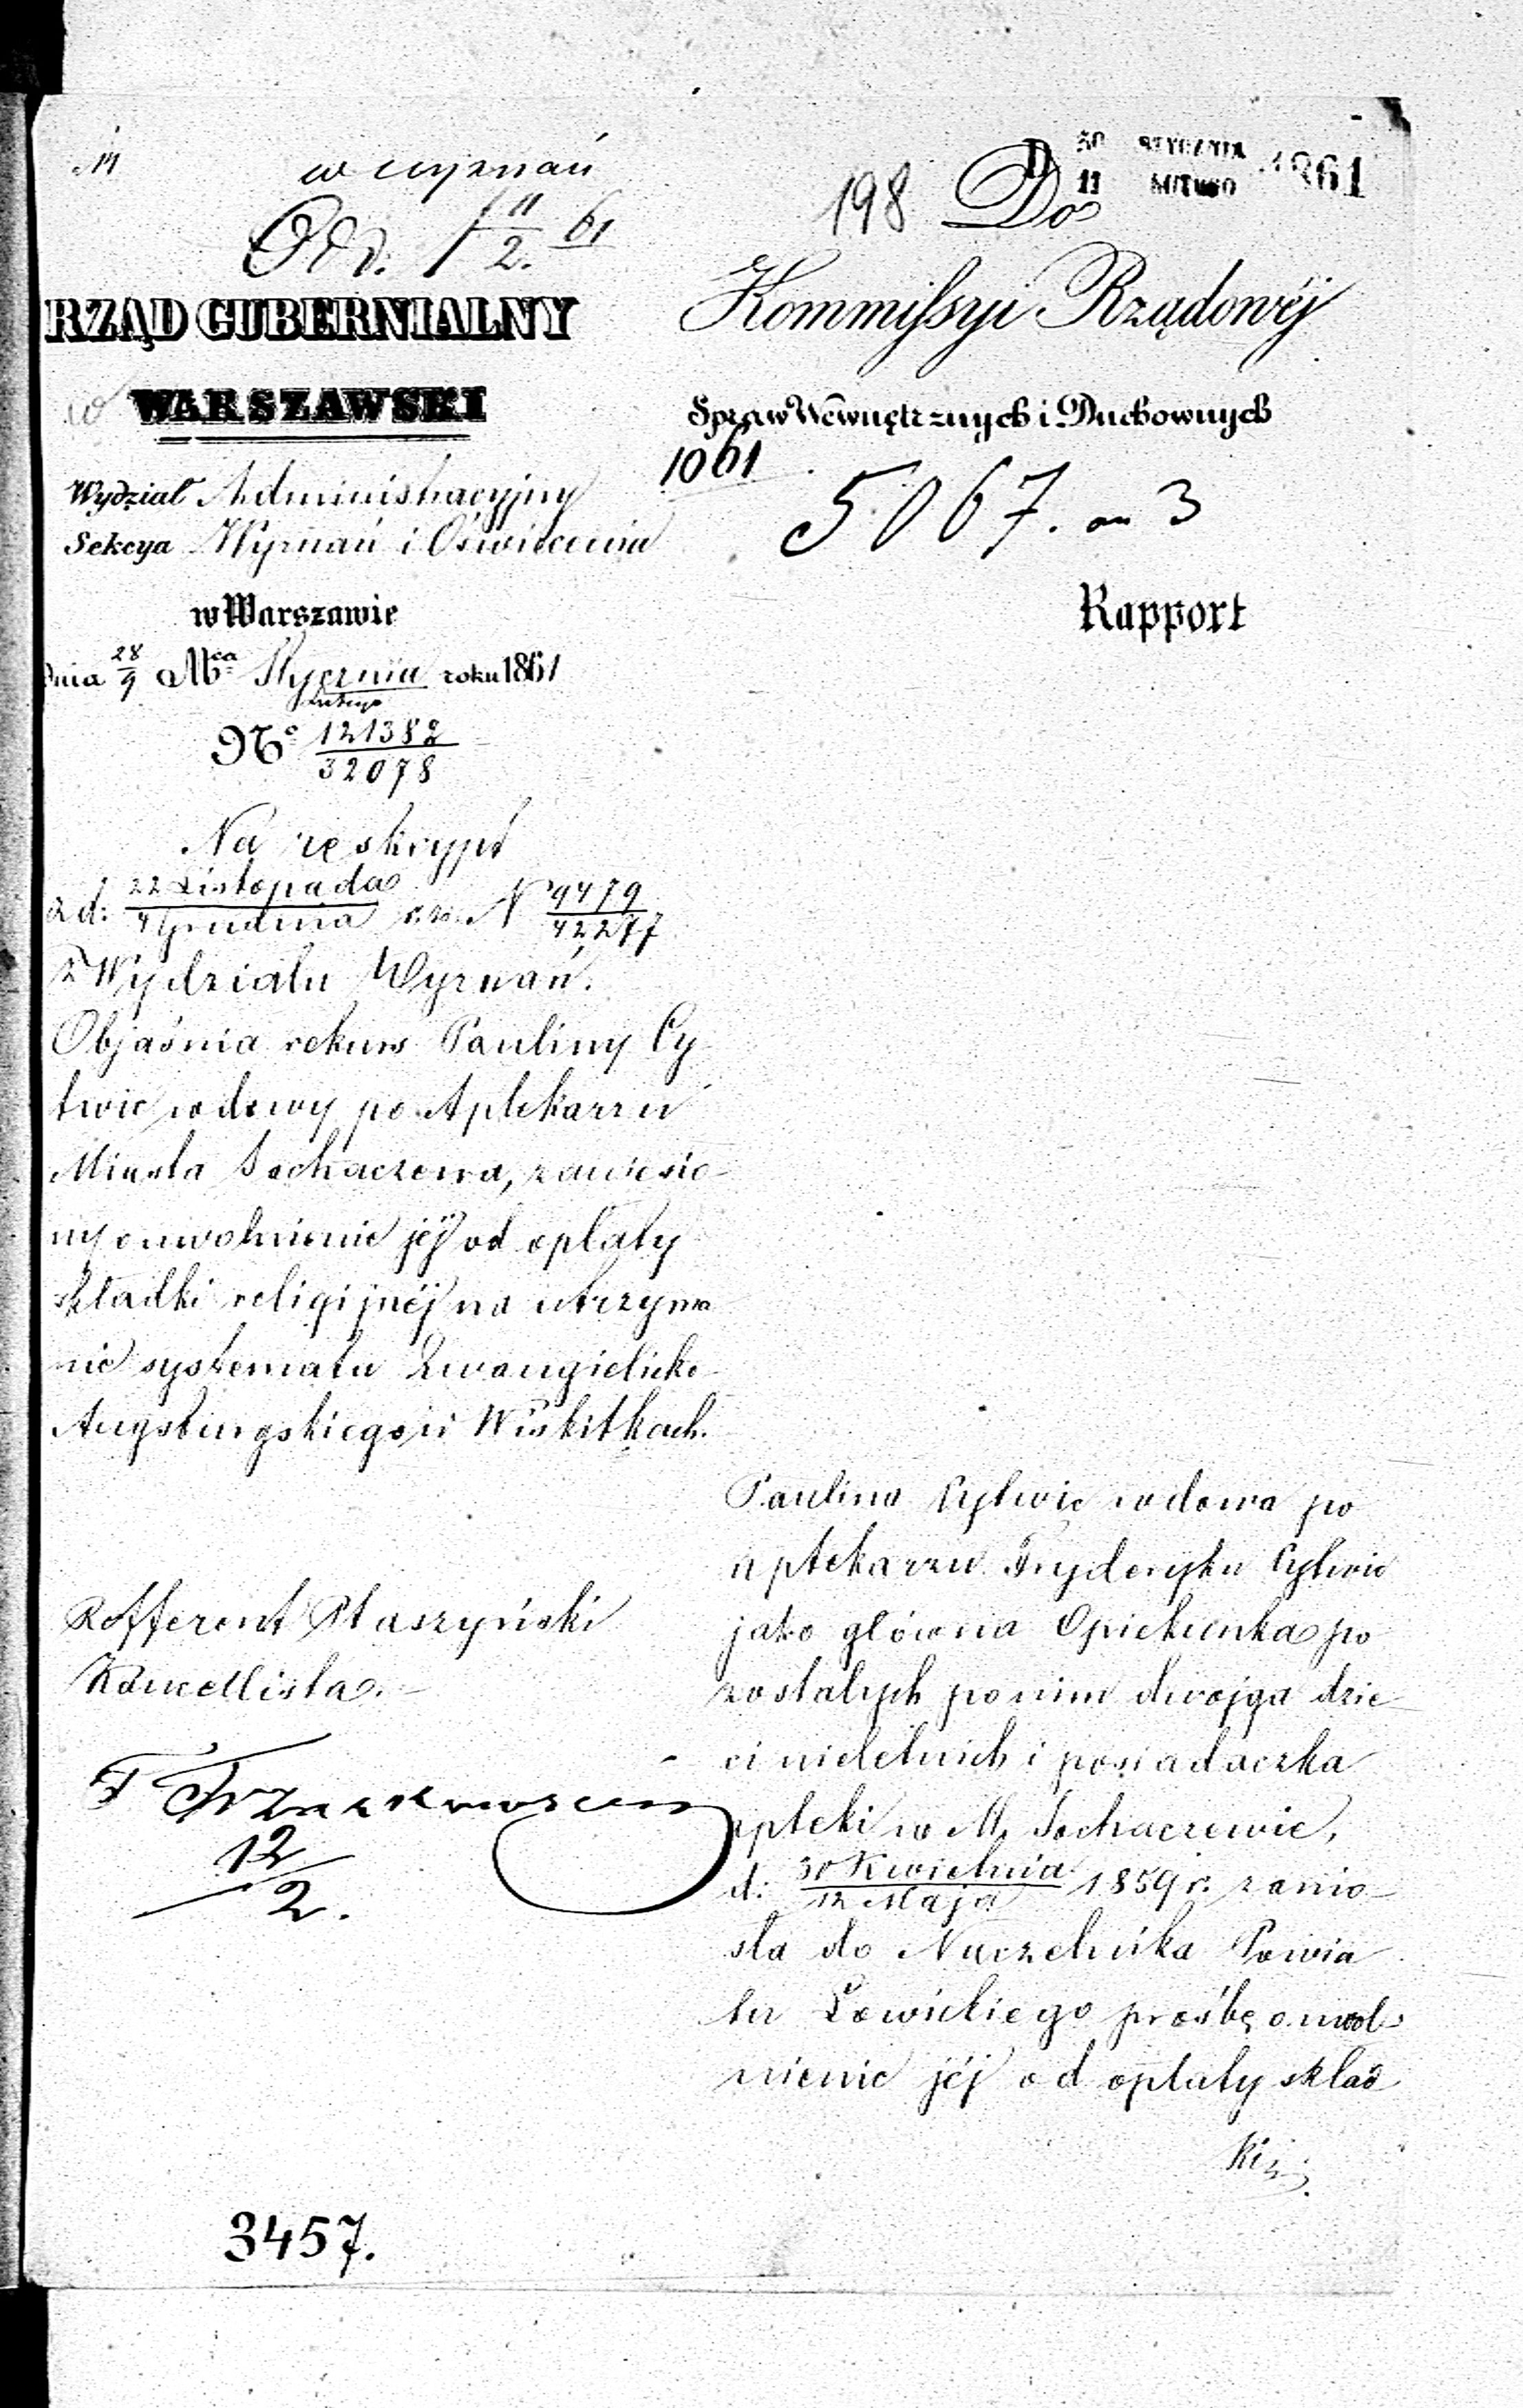 w wyznań
Odd. 1 11/2. 61
RZĄD GUBERNIALNY
WARSZAWSKI
Wydział Administracyjny
Sekcya Wyznań i Oświecenia
w Warszawie
dnia 28/9 Mca Stycznia/Lutego roku 1861
No 121382/32078
Na reskrypt
z d: 22 Listopada/4 Grudnia r. z. N 9479/42277
z Wydziału Wyznań.
Objaśnia rekurs Pauliny Cy
twic wdowy po Aptekarzu
Miasta Sochaczewa, zaniesio-
ny o uwolnienie jéj od opłaty
składki religijnéj na utrzyma
nie systematu Ewangielicko-
Augsburgskiego w Wiskitkach.
Refferent Staszyński
Kancellista.
12/2.
3457.
30 STYCZNIA
11 LUTEGO 1861
198 Do
Kommissyi Rządowéj
Spraw Wewnętrznych i Duchownych
1061
5067. 3
Rapport
Paulina Cytwic wdowa po
aptekarzu Fryderyku Cytwic
jako główna Opiekunka po
zostałych po nim dwojga dzie-
ci nieletnich i posiadaczka
apteki w M. Sochaczewie,
d: 30 Kwietnia/12 Maja 1859 r. zanio-
sła do Naczelnika Powia
tu Łowickiego prośbę o uwol-
nienie jéj od opłaty skład
ki